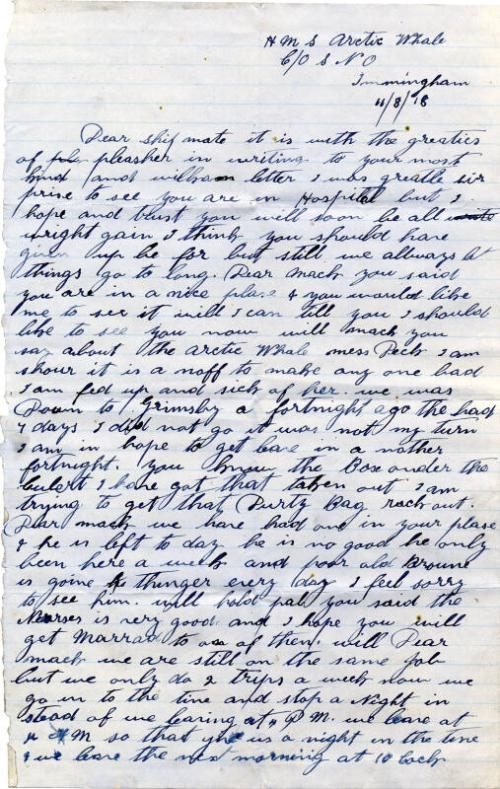 H M S Arctic Whale
C/O S N O
Immingham
11/8/18
Dear ship mate it is with the greaties
of pleasher in writing to your most
kind and letter I was greatle sir
prise to see you are in Hospital but I
hope and trust you will soon be all
wright gain I think you should have
given up be for but still we allways let
things go to long. Dear Mack you said
you are in a nice plase & you would like
me to see it will I can tell you I should
like to see you now will mack you
say about the Arctic Whale mess Deck I am
shour it is a noff to make any one bad
I am fed up and sick of her. we was
Down to Grimsby a fortnight ago the had
4 days I did not go it was not my turn
I am in hope to get leave in a nother
fortnight. you know the Box onder the
I have got that taken out I am
trying to get that Durty Bag rack out.
Dear mack we have had one in your plase
& he is left to day he is no good he only
been here a week and poor old Broune
is goine thinger every day I feel sorry
to see him. will hold pal you said the
Nurses is very good and I hope you will
get Marrad to one of them. will Dear
mack we are still on the same job
but we only do 2 trips a week now we
go in to the tine and stop a Night in
stead of we learing at 4 P.M. we leave at
4 M so that give us a night in the tine
& we leave the next morning at 10 Clock